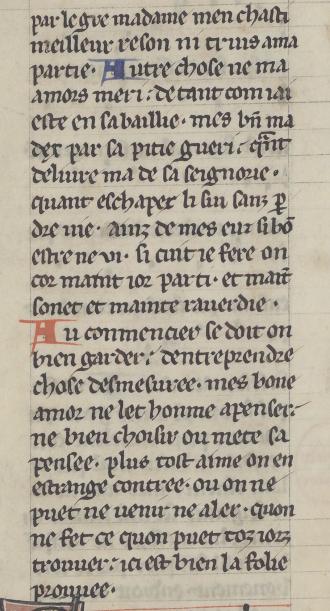 par le gre madame men chasti
meilleur reson ni truis a ma
partie. Autre chose ne ma
amors meri. de tant com iai
este en sa baillie. mes bn̄ ma
dex par sa pitie gueri. qͣnt
deliure ma de sa seignorie.
quant eschapez li sui sanz ꝑ
dre uie. ainz de mes eur si bō
estre ne vi. si cuit ie fere on
cor maint ior parti. et maīt
sonet et mainte rauerdie.
Au conmencier se doit on
bien garder. dentreprendre
chose desmesuree. mes bone
amor ne let honme apenser.
ne bien choisir ou mete sa
pensee. plus tost aime on en
estrange contree. ou on ne
puet ne uenir ne aler. quon
ne fet ce quon puet toz iorz
trouuer. ici est bien la folie
prouuee.